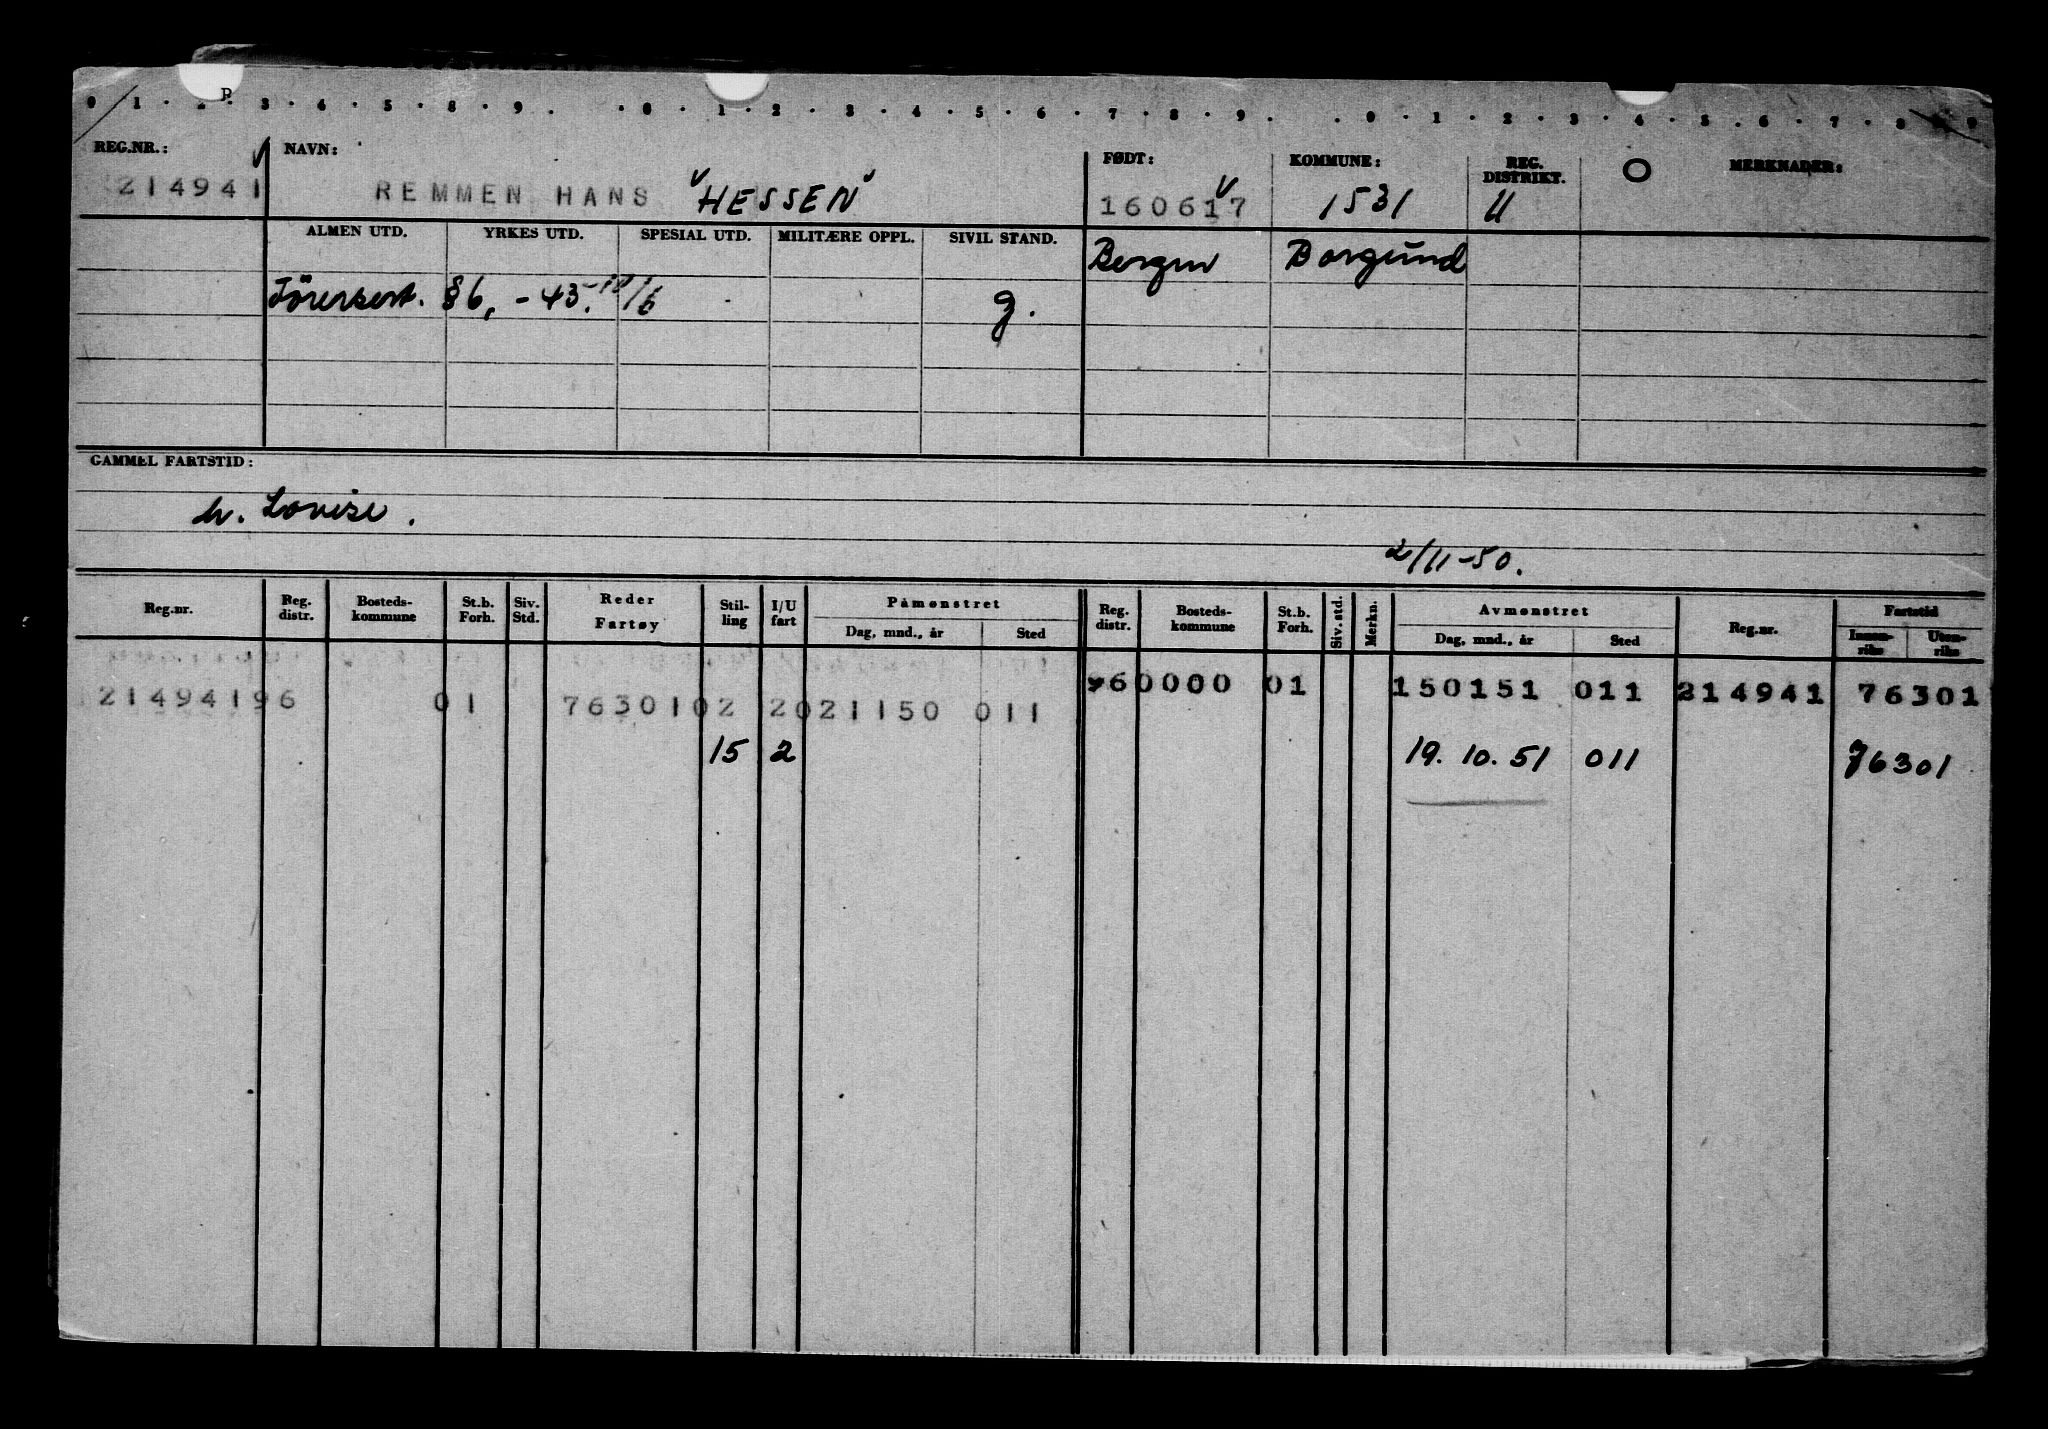 P
0 1 · 2 · 3 · 4 · 5 · 8 · 9 · · 0 · 1 · 2 · 3 · 4 · 5 · 6 · 7 · 8 · 9 · · 0 · 1 · 2 · 3 · 4 · 5 · 6 · 7 · 8 9
REG.NR.: NAVN: FØDT: KOMMUNE: REG. DISTRIKT. O MERKNADER:
214941 REMMEN HANS "HESSEN" 160617 1531 U
ALMEN UTD. YRKES UTD. SPESIAL UTD. MILITÆRE OPPL. SIVIL STAND. Bergen Borgund
Försersert. §6, -43. 18/6 g.
GAMMEL FARTSTID:
h. Lovise.
2/11-50.
Reg.nr. Reg. distr. Bosteds-kommune St.b. Forh. Siv. Std. Reder Fartøy Stil-ling I/U fart Påmønstret Reg. distr. Bosteds-kommune St.b. Forh. Siv. std. Merkn. Avmønstret Reg.nr. Fartstid
Dag, mnd., år Sted Dag, mnd., år Sted Innen-riks Uten-riks
21494196 01 7630102 2021150 011 960000 01 150151 011 214941 76301
15 2 19. 10. 51 011 76301